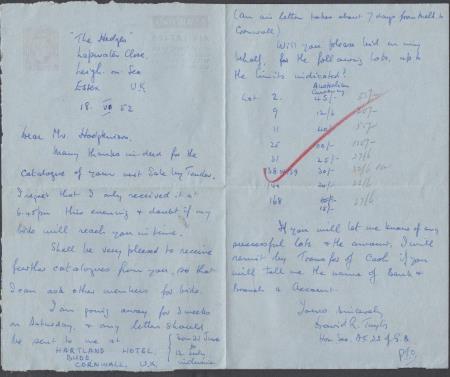 "The Hedges"
Lapwater Close,
Leigh. on Sea
Essex U.K
18. VI 52
Dear Mr. Hodgkinson,
Many thanks indeed for the
catalogue of your next Sale by Tender.
I regret that I only received it at
6.45pm this evening & doubt if my
bids will reach you in time.
Shall be very pleased to receive
further catalogues from you, so that
I can ask other members for bids.
I am going away for 3 weeks
on Saturday, & any letters should
be sent to me at
HARTLAND HOTEL,
BUDE
CORNWALL, U.K.
from 21 June
to
12 July
inclusive
(An air letter takes about 7 days from to
Cornwall)
Will you please bid on my
behalf, for the following lots, up to
the limits indicated?
Australian
Currency
Lot 2. 45/-
9 12/6
11 40/-
25
31 25/- 27/6
38 39 30/-
44 20/- 22/6
168 27/6
18/-
If you will let me know of any
successful lots & the amount, I will
remit by Transfer of Cash if you
will tell me the name of Bank &
Branch & Account.
Yours sincerely
David R. Taylor
Hon Sec.
P.T.O.